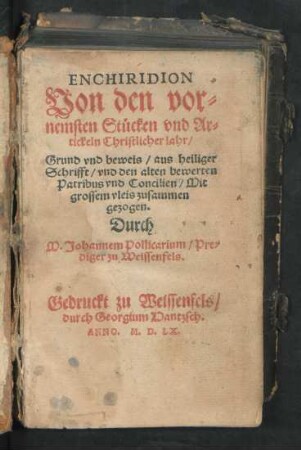 ENCHIRIDION
Von den vor-
nemsten Stücken vnd Ar-
tickeln Christlicher lahr/
Grund vnd beweis / aus heiliger
Schrifft / vnd den alten bewerten
Patribus vnd Concilien / Mit
grossem vleis zusammen
gezogen.
Durch
M. Johannem Pollicarium / Pre-
diger zu Weissenfels.
Gedruckt zu Weissenfels /
durch Georgium Hantzsch.
ANNO. M. D. LX.